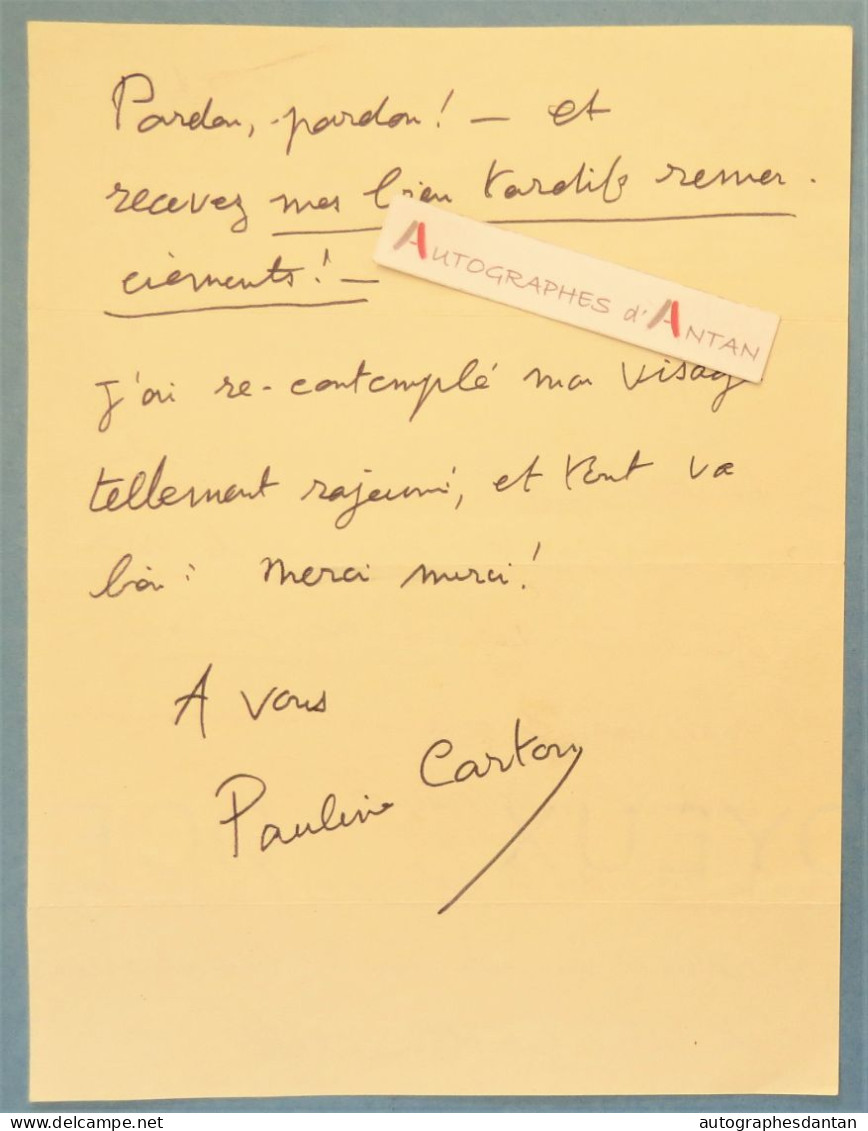 Pardon, pardon! — et
recevez mes bien tardifs remer-
ciements! —
AUTOGRAPHES d'ANTAN
J'ai re-contemplé mon visag
tellement rajeuni, et tout va
bien: merci merci!
A vous
Pauline Carton
delcampe.net
autographesdantan